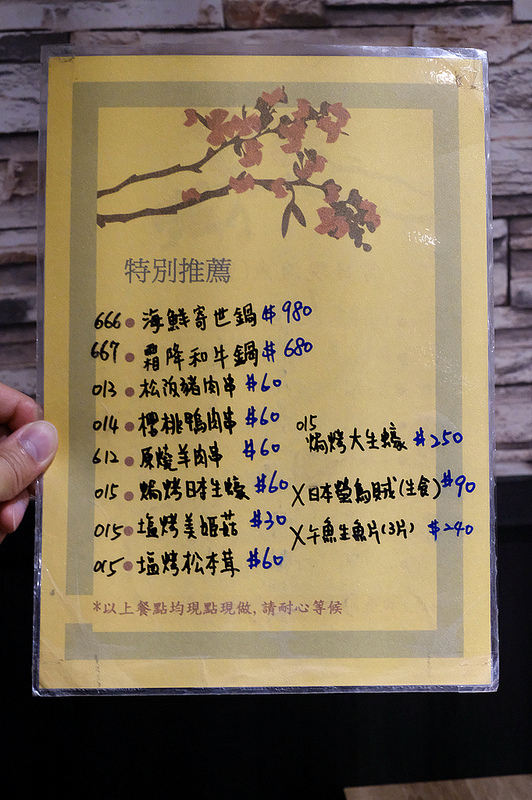 特別推薦
666 ● 海鮮寄世鍋 $980
667 ● 霜降和牛鍋 $680
013 ● 松阪豬肉串 $60
014 ● 櫻桃鴨肉串 $60
612 ● 原燒羊肉串 $60
015 ● 焗烤日本生蠔 $60
015 ● 塩烤美姬菇 $30
015 ● 塩烤松本茸 $60
015
焗烤大生蠔 $250
X日本螢烏賊(生食) $90
X午魚生魚片(3片) $240
*以上餐點均現點現做,請耐心等候